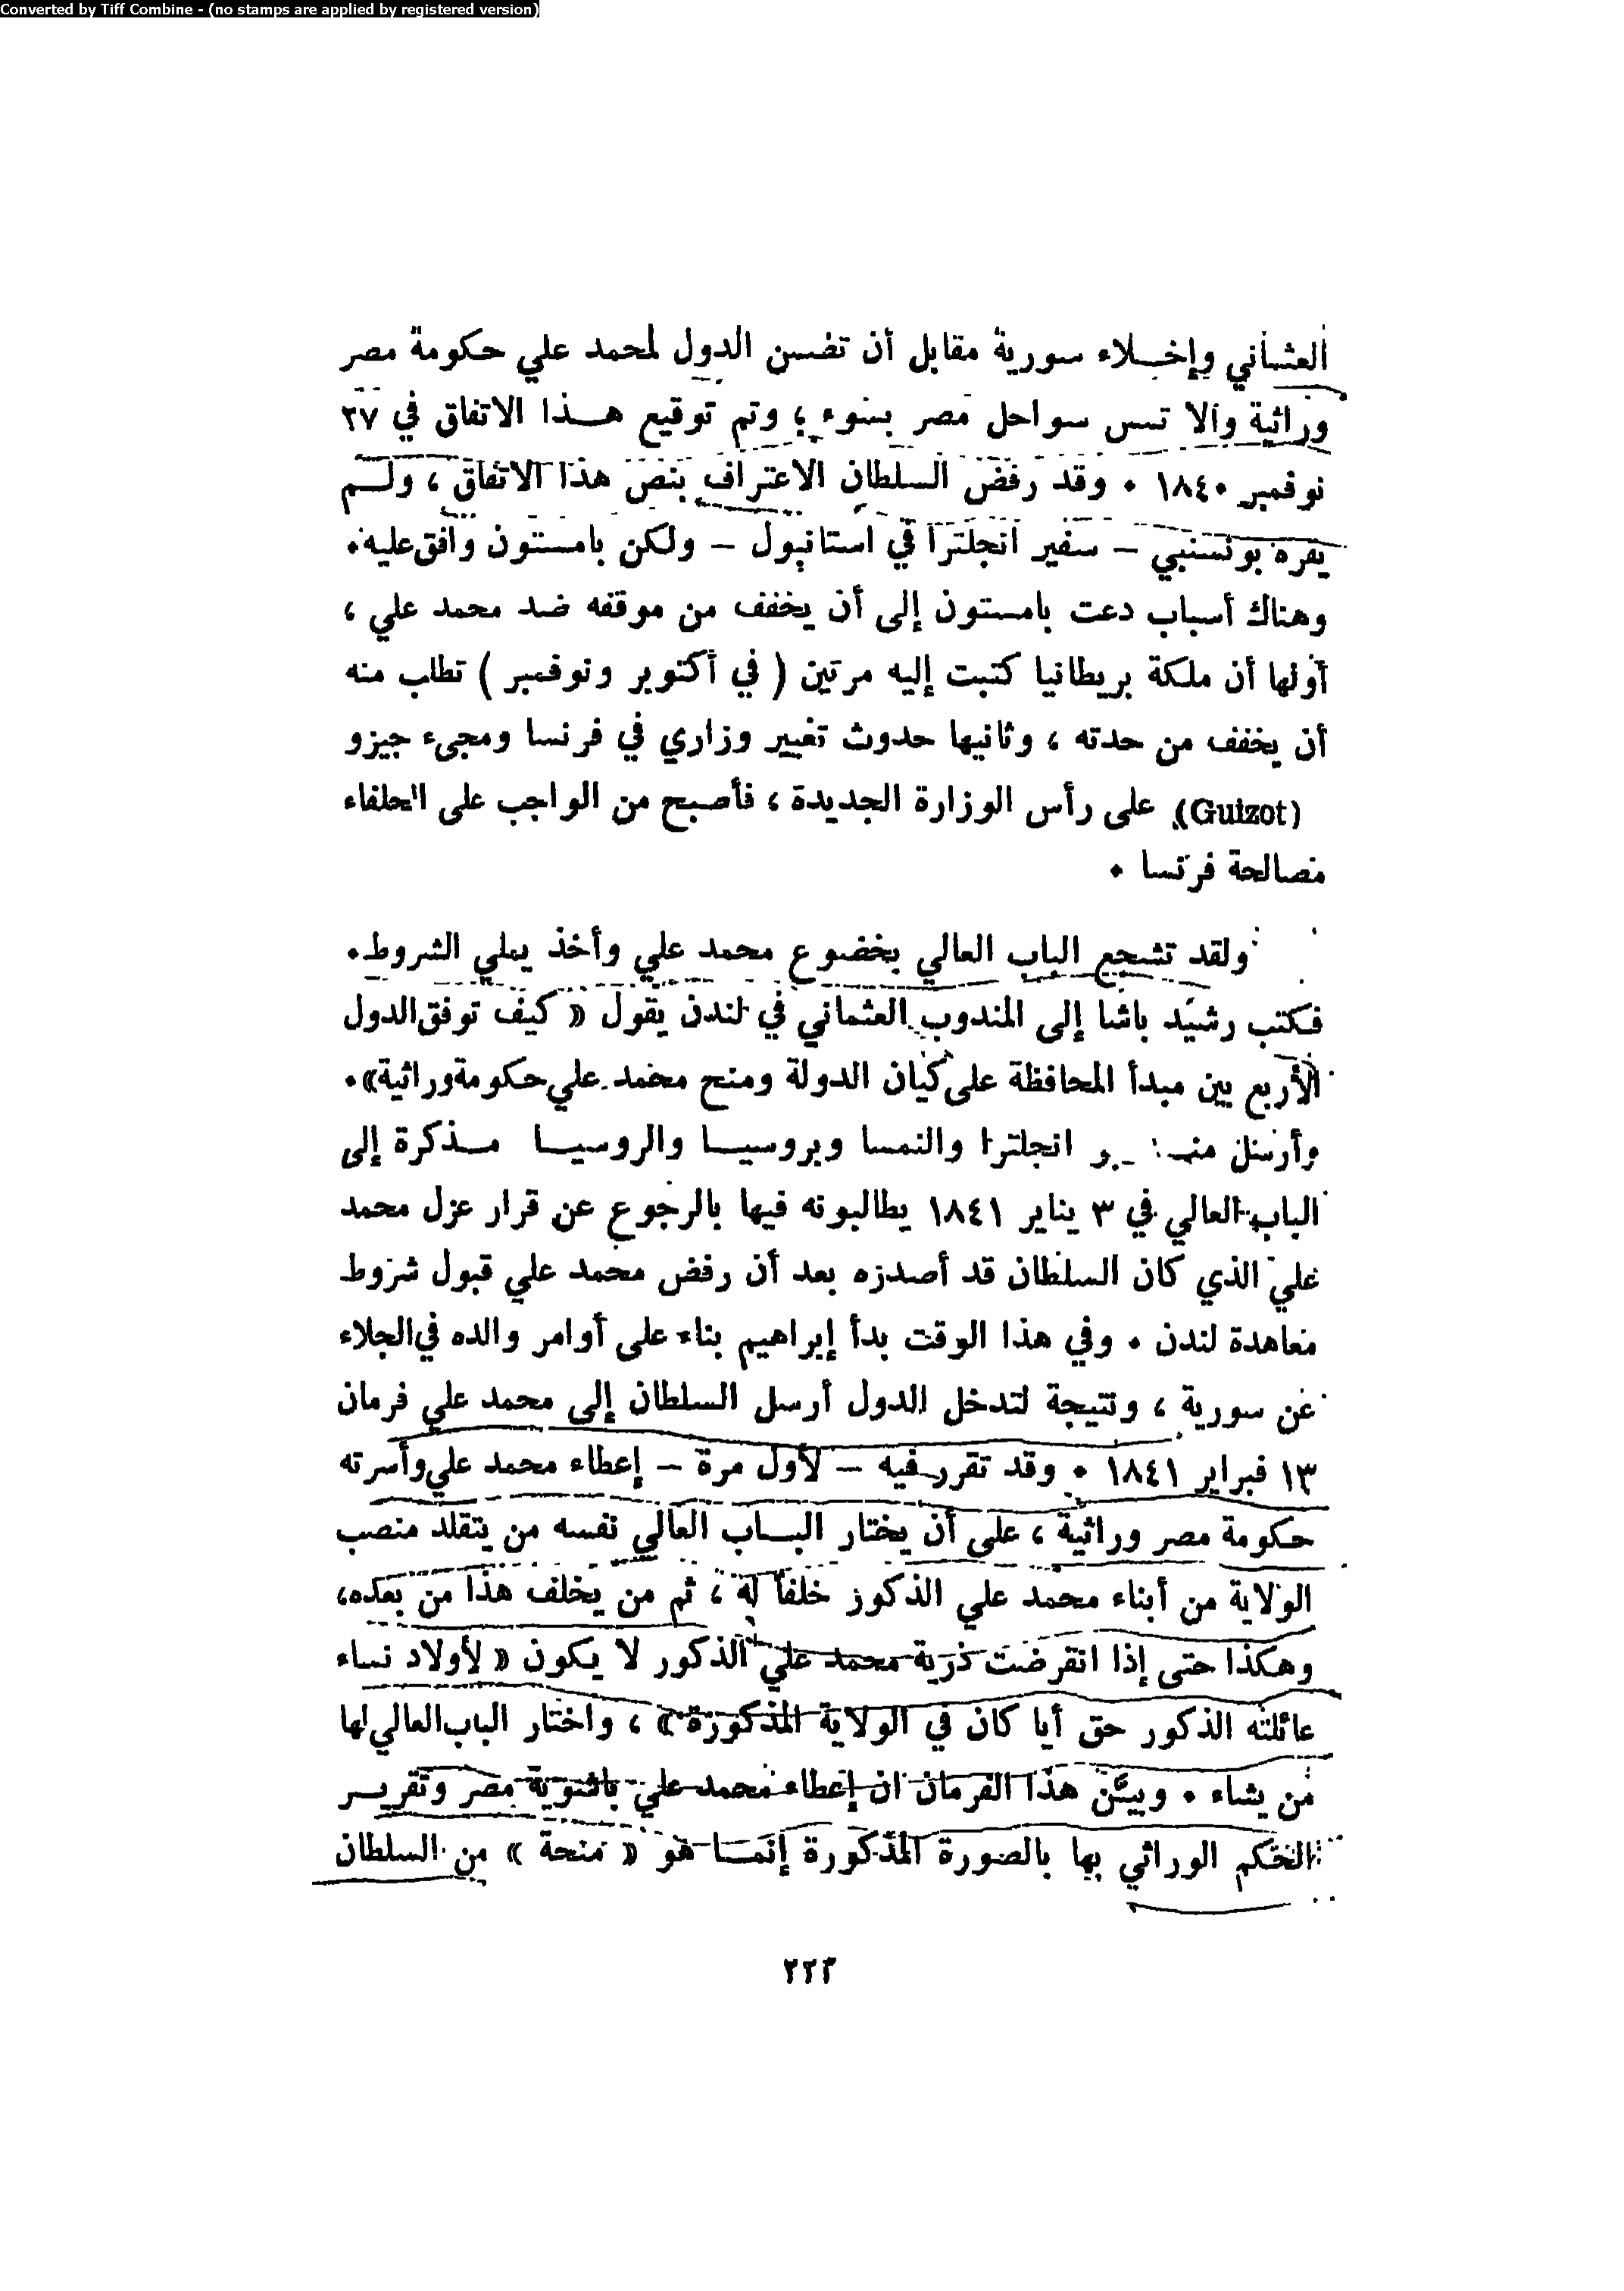 Converted by Tiff Combine - (no stamps are applied by registered version)
العثماني وإخلاء سورية مقابل أن تضمن الدول لمحمد علي حكومة مصر
وراثية وألا تمس سواحل مصر بسوء ؛ وتم توقيع هذا الاتفاق في ٢٧
نوفمبر ١٨٤٠ . وقد رفض السلطان الاعتراف بنص هذا الاتفاق ، ولم
يقره بونسنبي – سفير انجلترا في استانبول – ولكن بامستون وافق عليه .
وهناك أسباب دعت بامستون إلى أن يخفف من موقفه ضد محمد علي ،
أولها أن ملكة بريطانيا كتبت إليه مرتين ( في أكتوبر ونوفمبر ) تطلب منه
أن يخفف من حدته ، وثانيها حدوث تغيير وزاري في فرنسا ومجيء جيزو
(Guizot) على رأس الوزارة الجديدة ، فأصبح من الواجب على الحلفاء
مصالحة فرنسا .
ولقد تشجع الباب العالي بخضوع محمد علي وأخذ يملي الشروط .
فكتب رشيد باشا إلى المندوب العثماني في لندن يقول « كيف توفق الدول
الأربع بين مبدأ المحافظة على كيان الدولة ومنح محمد علي حكومة وراثية» .
وأرسل انجلترا والنمسا وبروسيا والروسيا مذكرة إلى
الباب العالي في ٣ يناير ١٨٤١ يطالبونه فيها بالرجوع عن قرار عزل محمد
علي الذي كان السلطان قد أصدره بعد أن رفض محمد علي قبول شروط
معاهدة لندن . وفي هذا الوقت بدأ إبراهيم بناء على أوامر والده في الجلاء
عن سورية ، ونتيجة لتدخل الدول أرسل السلطان إلى محمد علي فرمان
١٣ فبراير ١٨٤١ . وقد تقرر فيه – لأول مرة – إعطاء محمد علي وأسرته
حكومة مصر وراثية ، على أن يختار الباب العالي نفسه من يتقلد منصب
الولاية من أبناء محمد علي الذكور خلفا له ، ثم من يخلف هذا من بعده،
وهكذا حتى إذا انقرضت ذرية محمد علي الذكور لا يكون « لأولاد نساء
عائلته الذكور حق أيا كان في الولاية المذكورة » ، واختار الباب العالي لها
من يشاء . وبيَّن هذا الفرمان ان إعطاء محمد علي باشوية مصر وتقرير
الحكم الوراثي بها بالصورة المذكورة إنما هو « منحة » من السلطان
٢٢٣